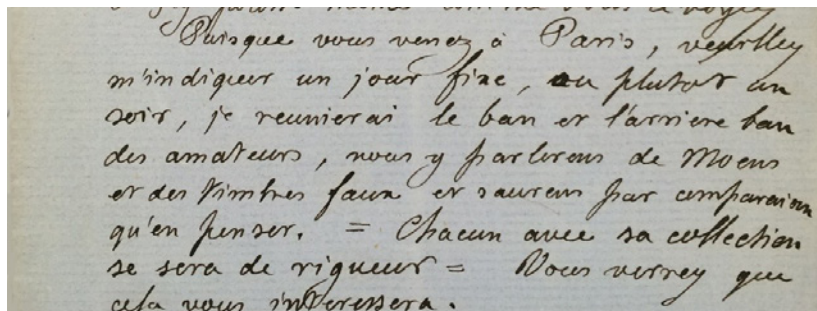 Puisque vous venez à Paris, veuilley
m'indiquer un jour fixe, ou plutot un
soir, je reunierai le ban et l'arriere ban
des amateurs, nous y parlerons de Moens
et des Timbres faux et saurons par comparaison
qu'en penser. = Chacun avec sa collection
se sera de rigueur = Vous verrey que
cela vous interessera.